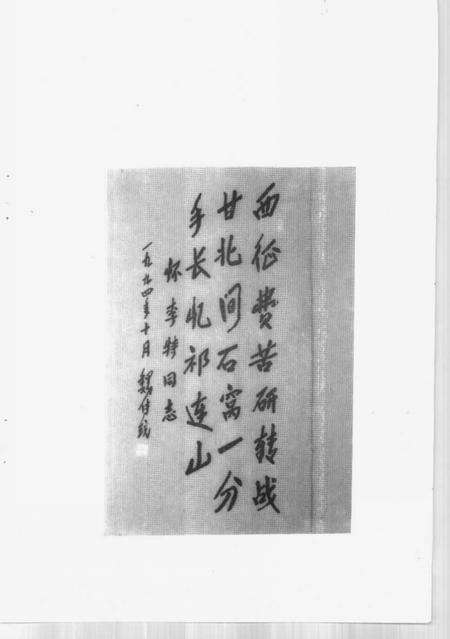 西征费苦研转战
甘北间石窝一分
手长忆祁连山
怀李特同志
一九九四年十月 魏传统